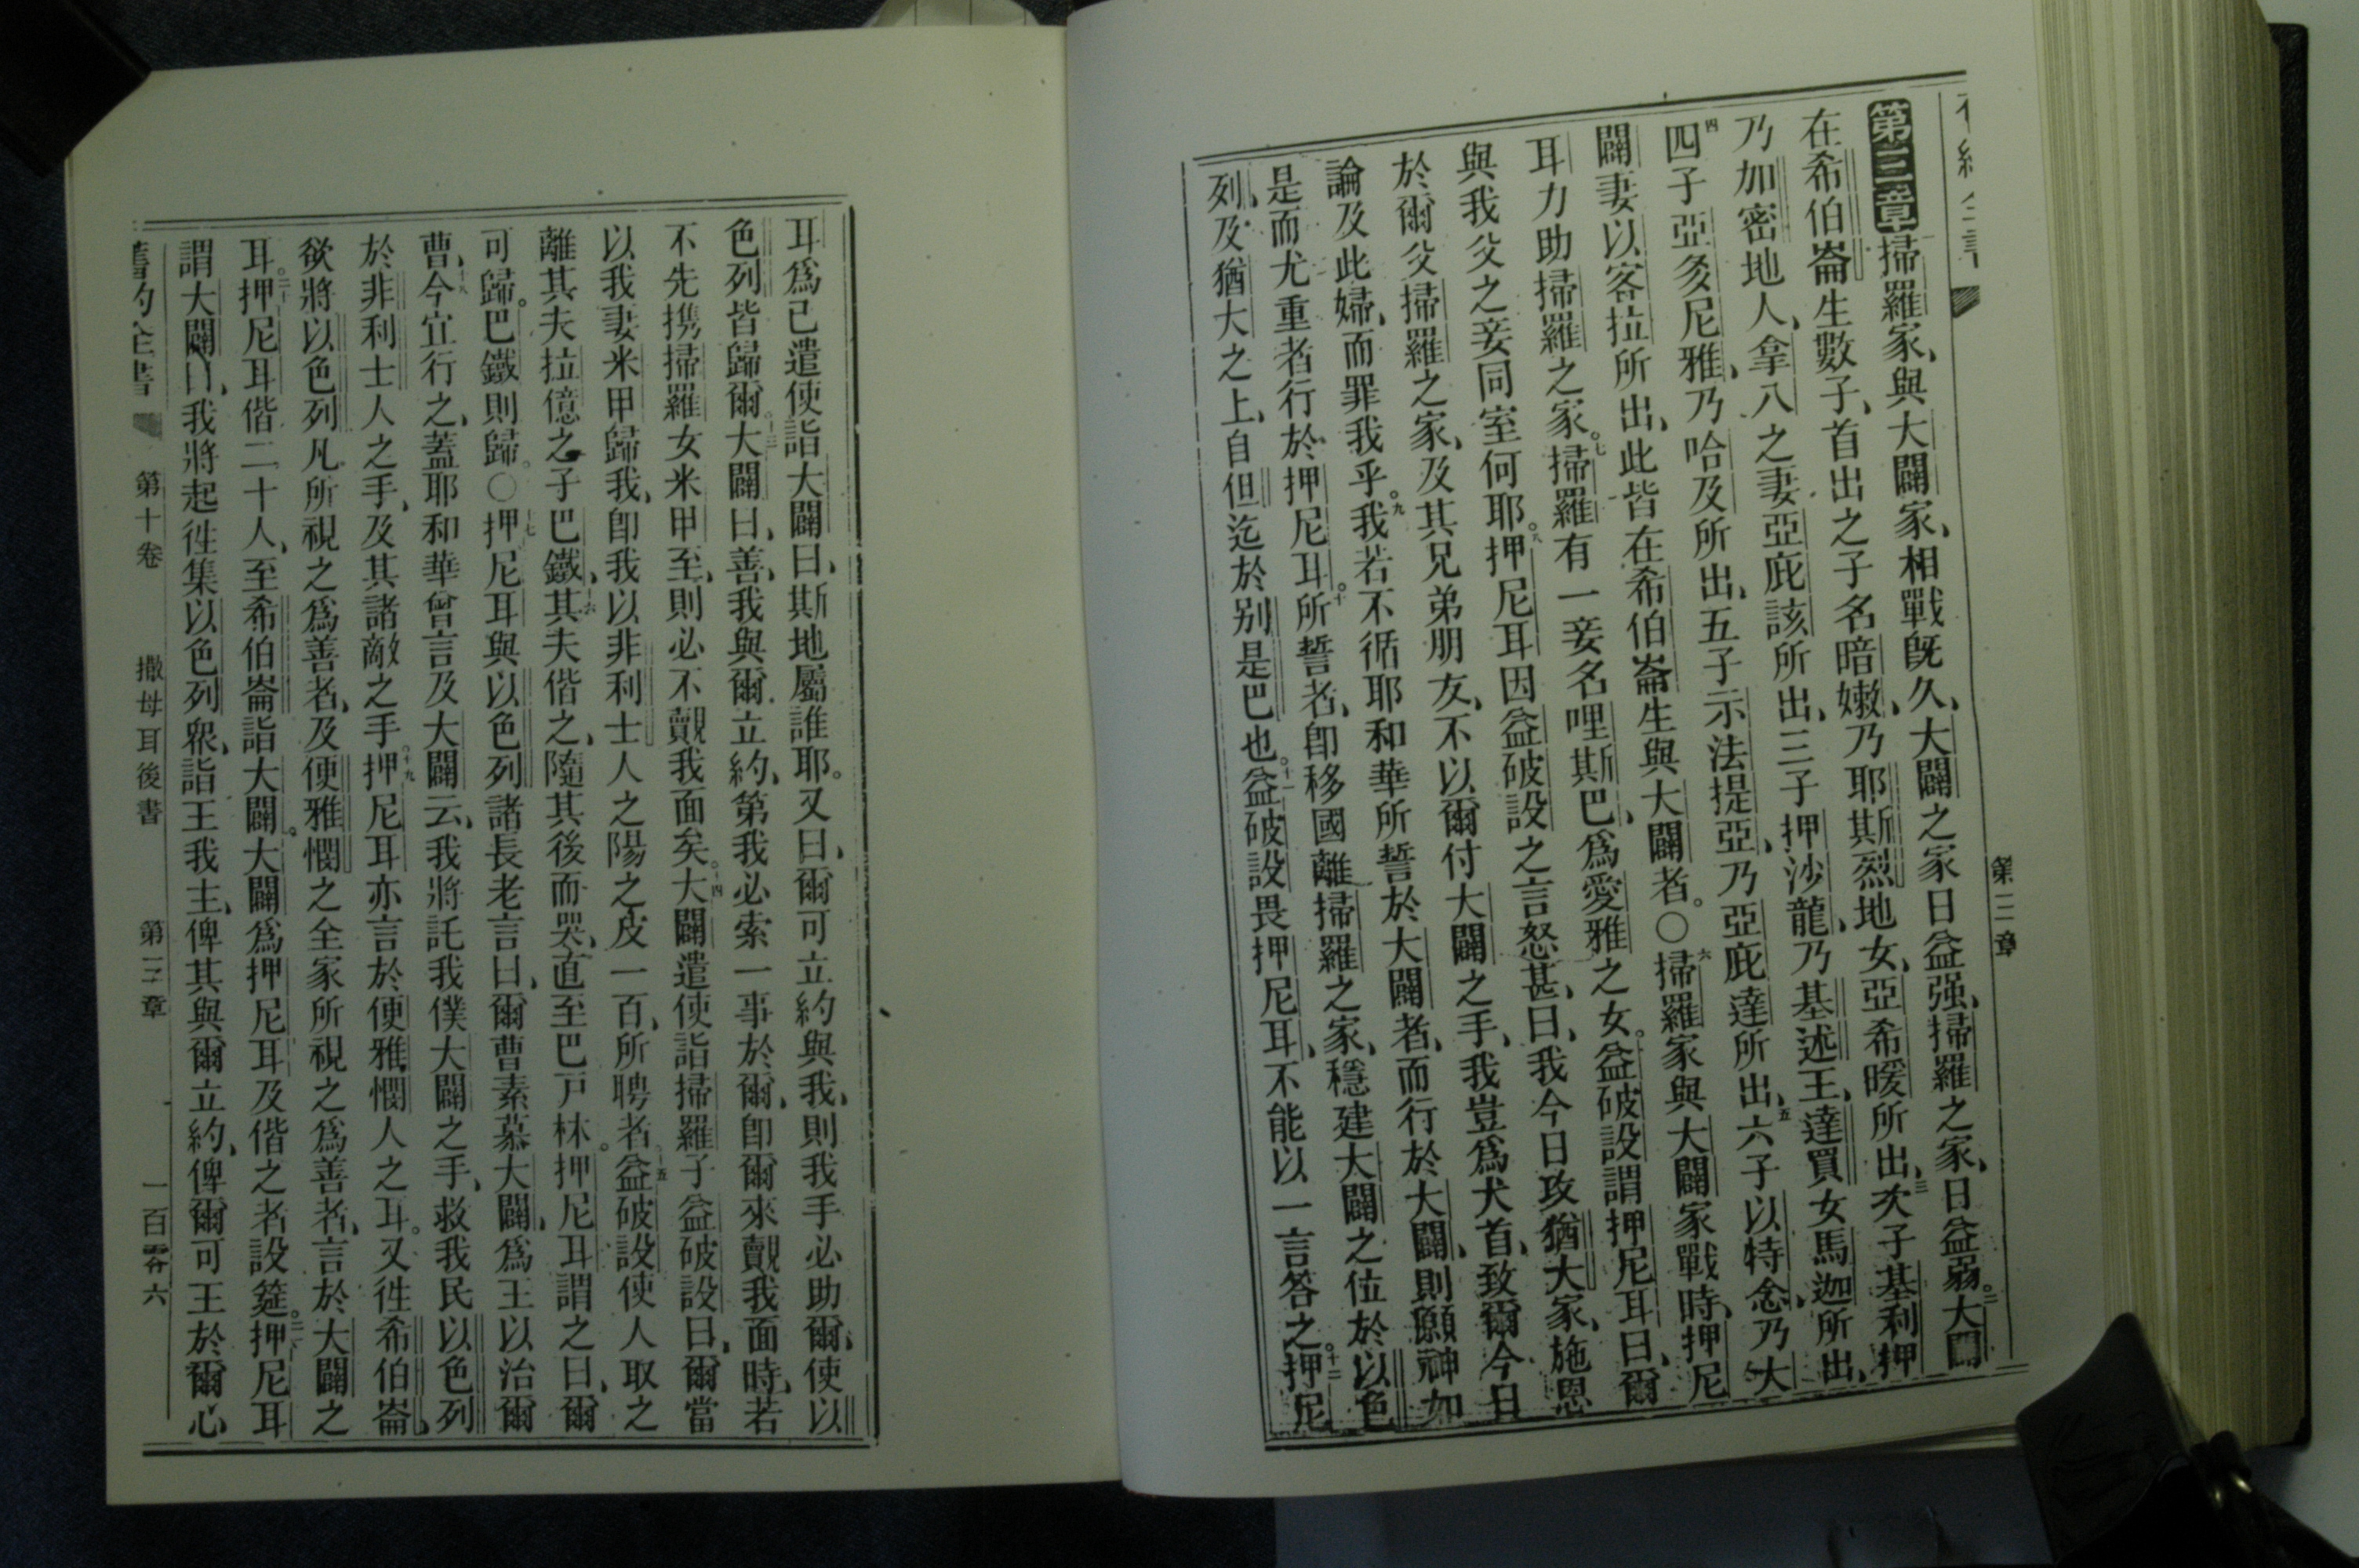 第三章
第三章掃羅家、與大闢家、相戰旣久、大闢之家日益强、掃羅之家、日益弱。二大闢
在希伯崙生數子、首出之子名暗嫩、乃耶斯烈地女、亞希暖所出、三次子基利押
乃加密地人、拿八之妻亞庇該所出、三子押沙龍、乃基述王、達買女馬迦所出、
四四子亞多尼雅、乃哈及所出、五子示法提亞、乃亞庇達所出、五六子以特念、乃大
闢妻以客拉所出、此皆在希伯崙生與大闢者。〇六掃羅家與大闢家戰時、押尼
耳力助掃羅之家。七掃羅有一妾名哩斯巴、爲愛雅之女。益破設謂押尼耳曰、爾
與我父之妾同室何耶。八押尼耳因益破設之言怒甚、曰、我今日攻猶大家、施恩
於爾父掃羅之家、及其兄弟朋友、不以爾付大闢之手、我豈爲犬首、致爾今日
論及此婦、而罪我乎。九我若不循耶和華所誓於大闢者、而行於大闢、則願神加
是而尤重者行於押尼耳。十所誓者、卽移國離掃羅之家、穩建大闢之位於以色
列、及猶大之上、自但迄於别是巴也。十一益破設畏押尼耳、不能以一言答之。十二押尼
耳爲己遣使詣大闢曰、斯地屬誰耶。又曰、爾可立約與我、則我手必助爾、使以
色列皆歸爾。十三大闢曰、善、我與爾立約、第我必索一事於爾、卽爾來覿我面時、若
不先携掃羅女米甲至、則必不覿我面矣。十四大闢遣使詣掃羅子益破設曰、爾當
以我妻米甲歸我、卽我以非利士人之陽之皮一百、所聘者。十五益破設使人取之
離其夫拉億之子巴鐵、十六其夫偕之、隨其後而哭、直至巴戸林。押尼耳謂之曰、爾
可歸。巴鐵則歸。〇十七押尼耳與以色列諸長老言曰、爾曹素慕大闢、爲王以治爾
曹、十八今宜行之、蓋耶和華曾言及大闢云、我將託我僕大闢之手、救我民以色列
於非利士人之手、及其諸敵之手。十九押尼耳亦言於便雅憫人之耳。又徃希伯崙、
欲將以色列凡所視之爲善者、及便雅憫之全家所視之爲善者、言於大闢之
耳。二十押尼耳偕二十人、至希伯崙詣大闢。大闢爲押尼耳及偕之者設筵。二一押尼耳
謂大闢曰、我將起徃集以色列衆、詣王我主、俾其與爾立約、俾爾可王於爾心
舊約全書 第十卷 撒母耳後書 第三章 一百零六